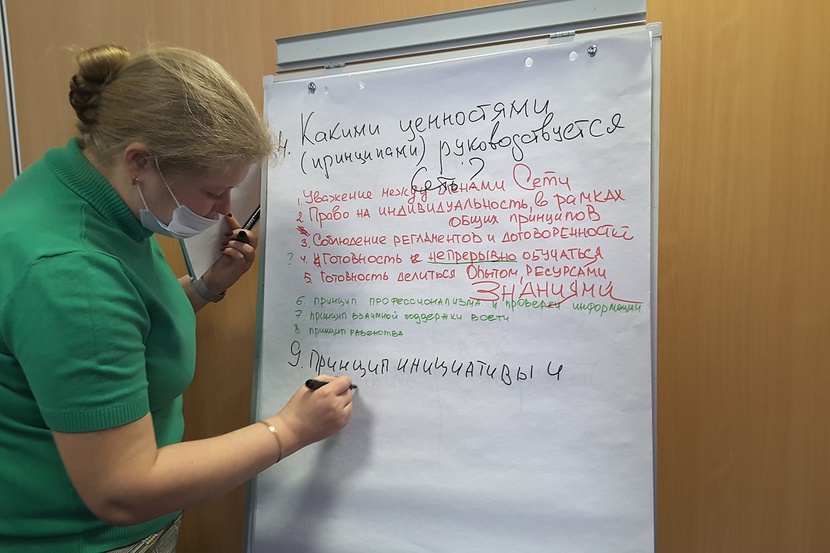 4. Какими ценностями
(принципами) руководствуется
Сеть?
1. Уважение между членами Сети
2. Право на индивидуальность, в рамках
общих принципов
3. Соблюдение регламентов и договоренностей
? 4. Готовность к непрерывно обучаться
5. Готовность делиться Опытом, ресурсами
ЗНАНИЯМИ
6. принцип профессионализма и проверки информации
7 принцип взаимной поддержки в сети
8. принцип равенства
9. Принцип инициативы и